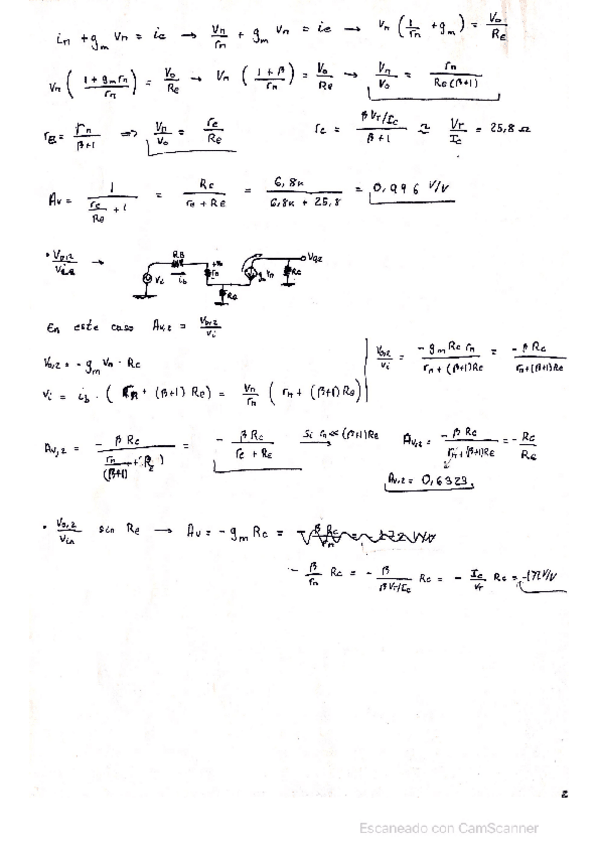 iπ + gm Vπ = ie → Vπ/rπ + gm Vπ = ie → Vπ (1/rπ + gm) = Vo/RE
Vπ ( (1 + gm rπ)/rπ ) = Vo/Re → Vπ ( (1 + β)/rπ ) = Vo/Re → Vπ/Vo = rπ/(RE(β+1))
rE = rπ/(β+1) => Vπ/Vo = re/Re re = (β VT/Ic)/(β+1) ≈ VT/Ic = 25,8 Ω
Av = 1/(re/Re + 1) = Re/(re + Re) = 6,8k/(6,8k + 25,8) = 0,996 V/V
• Vo,2/Vi,2 → RB Vi ib rπ Vπ Re Rc Vo,2
En este caso Av,2 = Vo,2/Vi
Vo,2 = - gm Vπ · Rc
Vo,2/Vi = - gm Rc rπ/(rπ + (β+1)Re) = - β Rc/(rπ + (β+1)Re)
Vi = ib · (rπ + (β+1) Re) = Vπ/rπ (rπ + (β+1) Re)
Av,2 = - β Rc/(rπ/(β+1) + RE) = - β Rc/(re + RE) Si rπ << (β+1)RE Av,2 = - β Rc/(rπ + (β+1)RE) = - Rc/RE
Av,2 = 0,6323
• Vo,2/Vin sin Re → Av = - gm Rc =
- β/rπ Rc = - β/(β VT/Ic) Rc = - Ic/VT Rc = -172 V/V
2
Escaneado con CamScanner